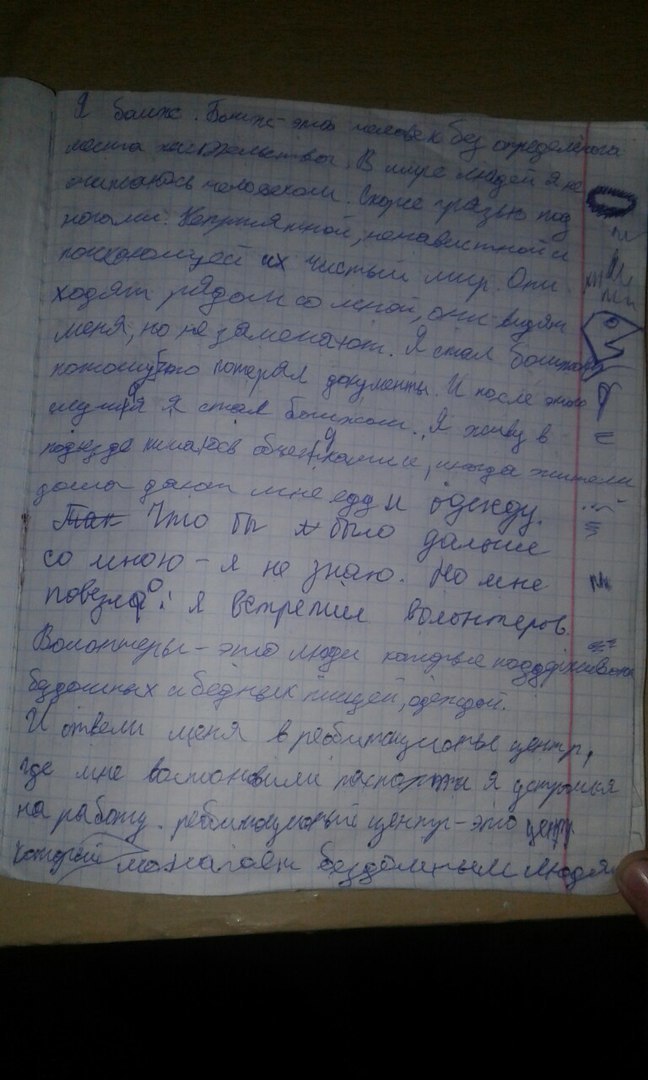 Я бомж. Бомж - это человек без определёного
места жительства. В мире людей я не
считаюсь человеком. Скорее грязью под
ногами. Неприятной, ненавистной и
их чистый мир. Они
ходят рядом со мной, они видят
меня, но не замечают. Я стал бомжом
потому что потерял документы. И после этого
случая я стал бомжом. Я живу в
подъезде питаюсь объедками, иногда жители
дома дают мне еду и одежду.
Так Что бы н было дальше
со мною - я не знаю. Но мне
повезло: я встретил волонтеров.
Волонтеры - это люди которые поддерживают
бездомных и бедных пищей, одеждой.
И отвели меня в реабитационый центр,
где мне востоновили паспорт и я устроился
на работу. реабитационый центр - это центр
который помогает бездомным людям